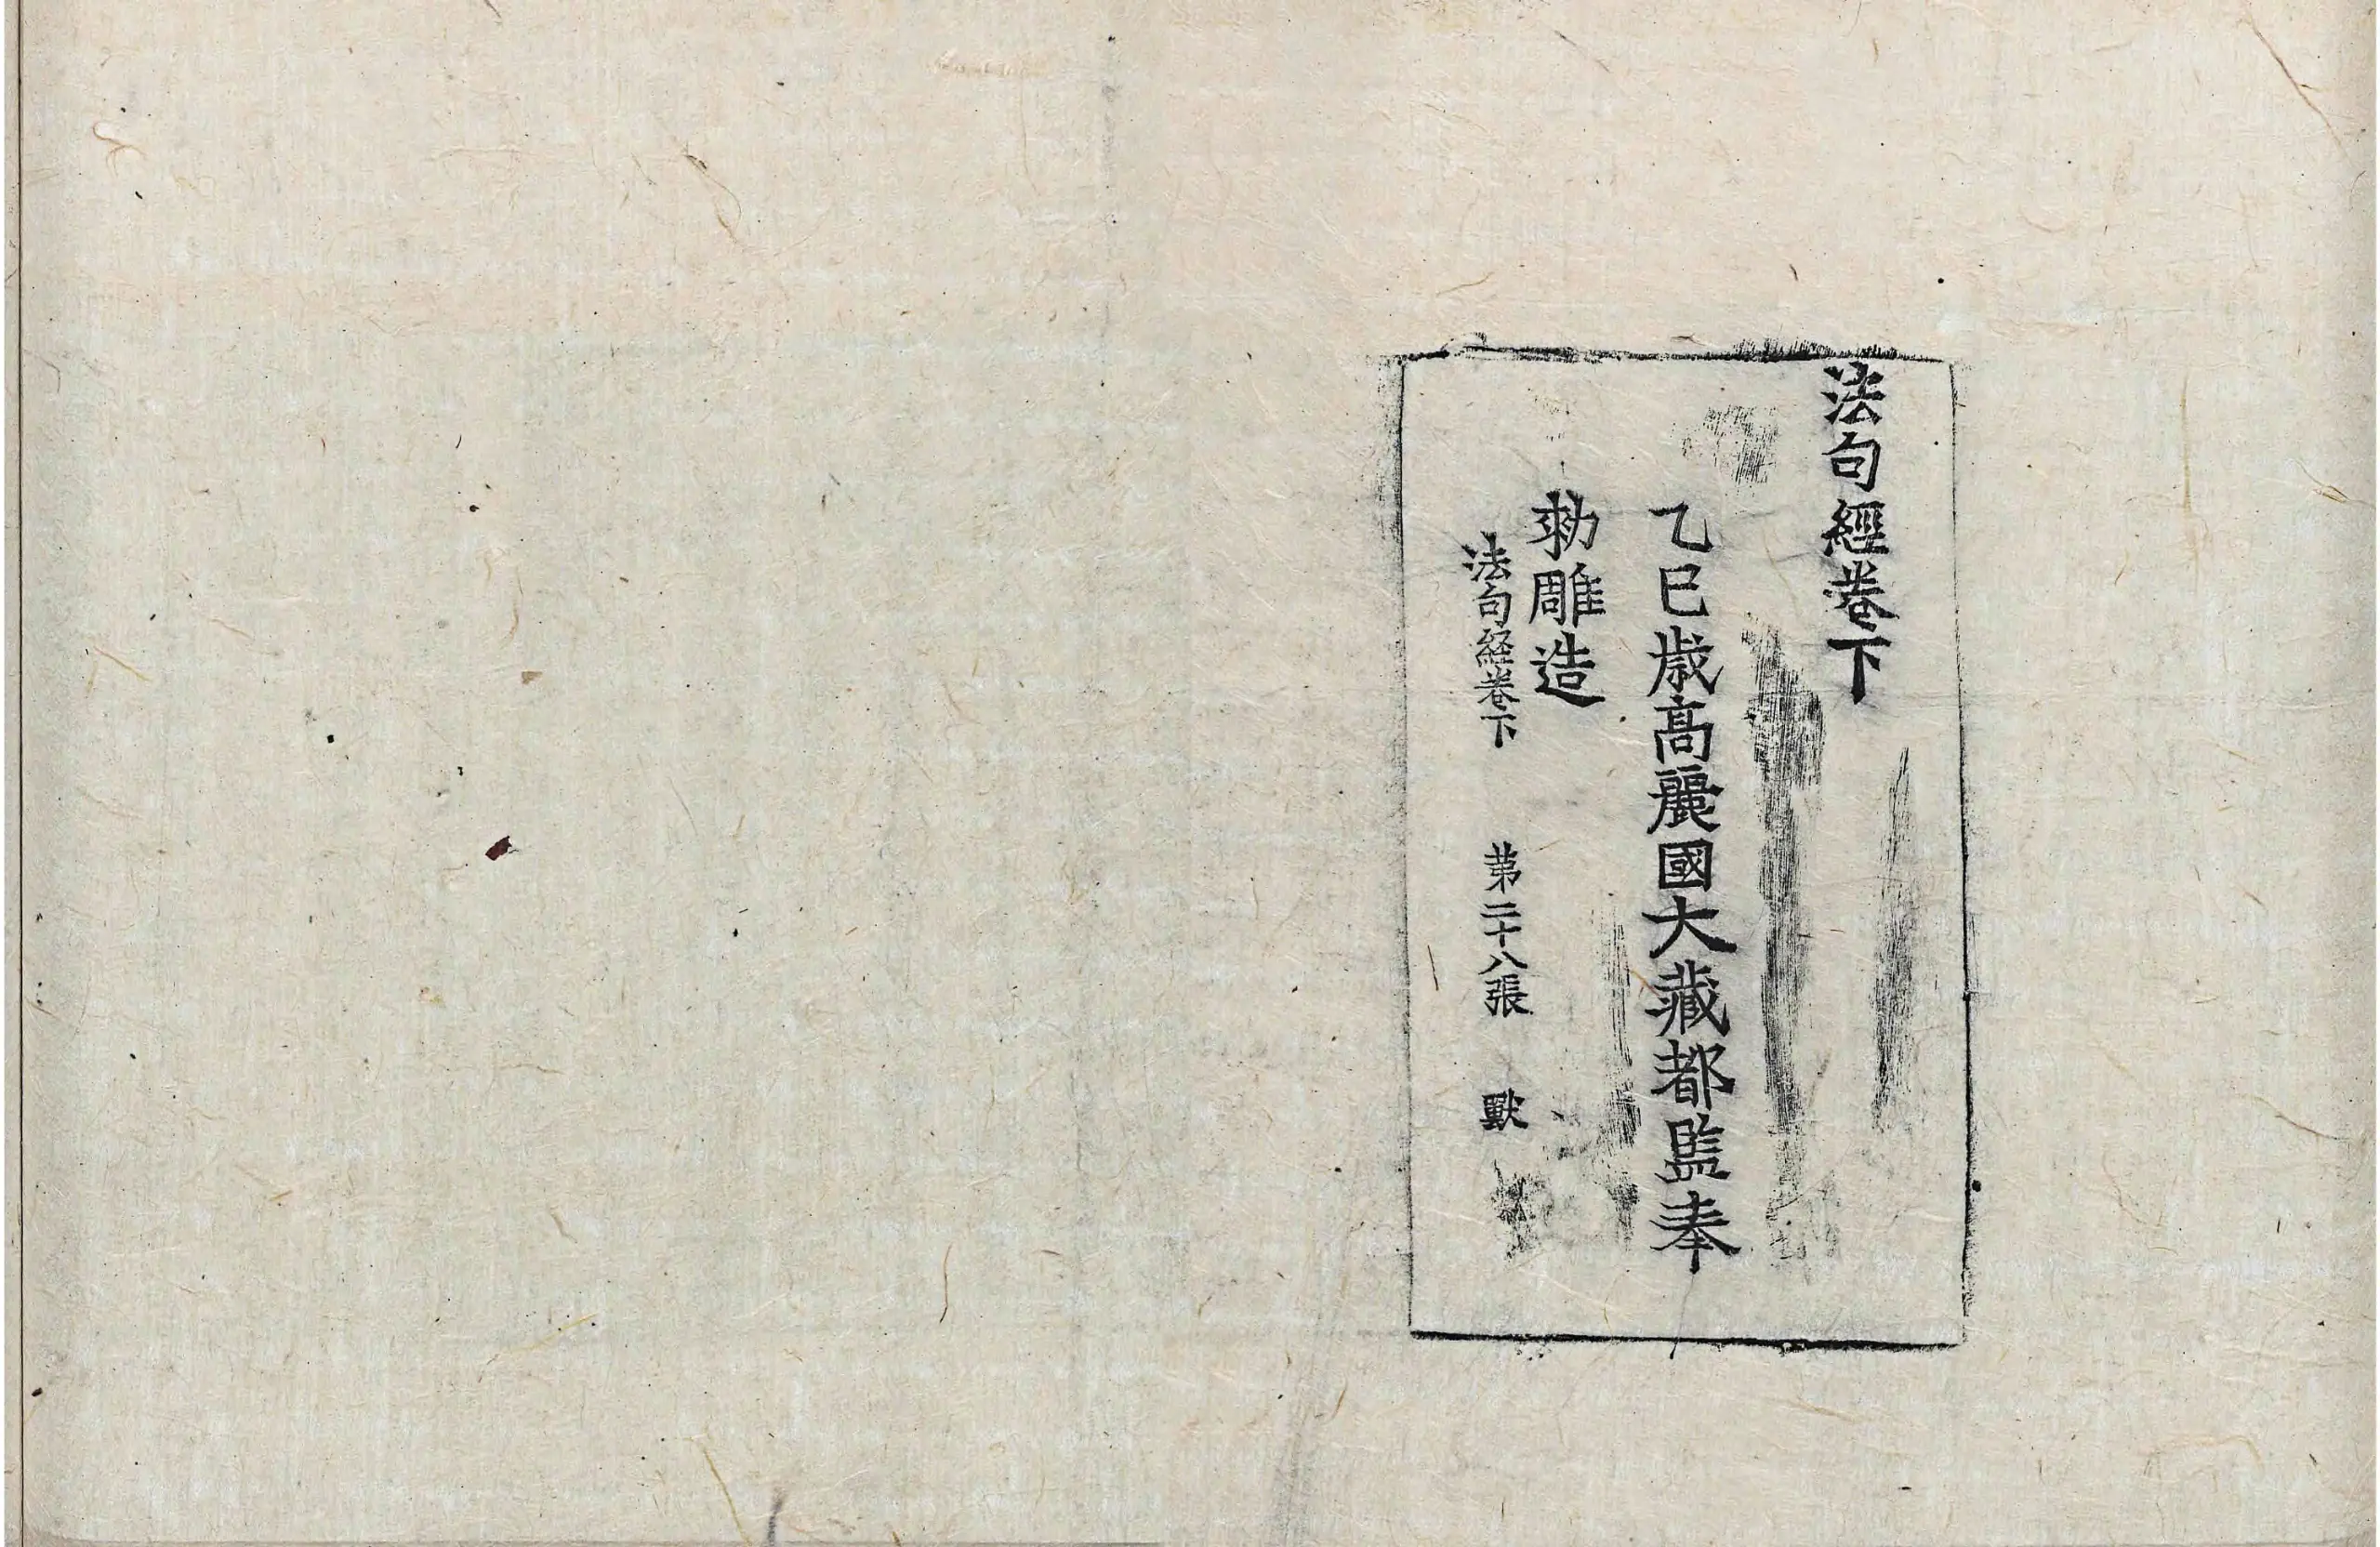 法句經卷下
乙巳歳髙麗國大藏都監奉
勑雕造
法句経卷下 苐二十八張 獸